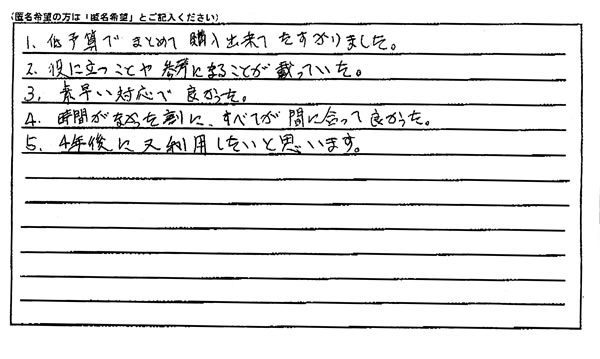 (匿名希望の方は「匿名希望」とご記入ください)
1、低予算で まとめて 購入出来て たすかりました。
2、役に立つことや 参考になることが 載っていた。
3、素早い対応で 良かった。
4、時間がなかった割に、すべてが 間に合って良かった。
5、4年後に又利用したいと思います。